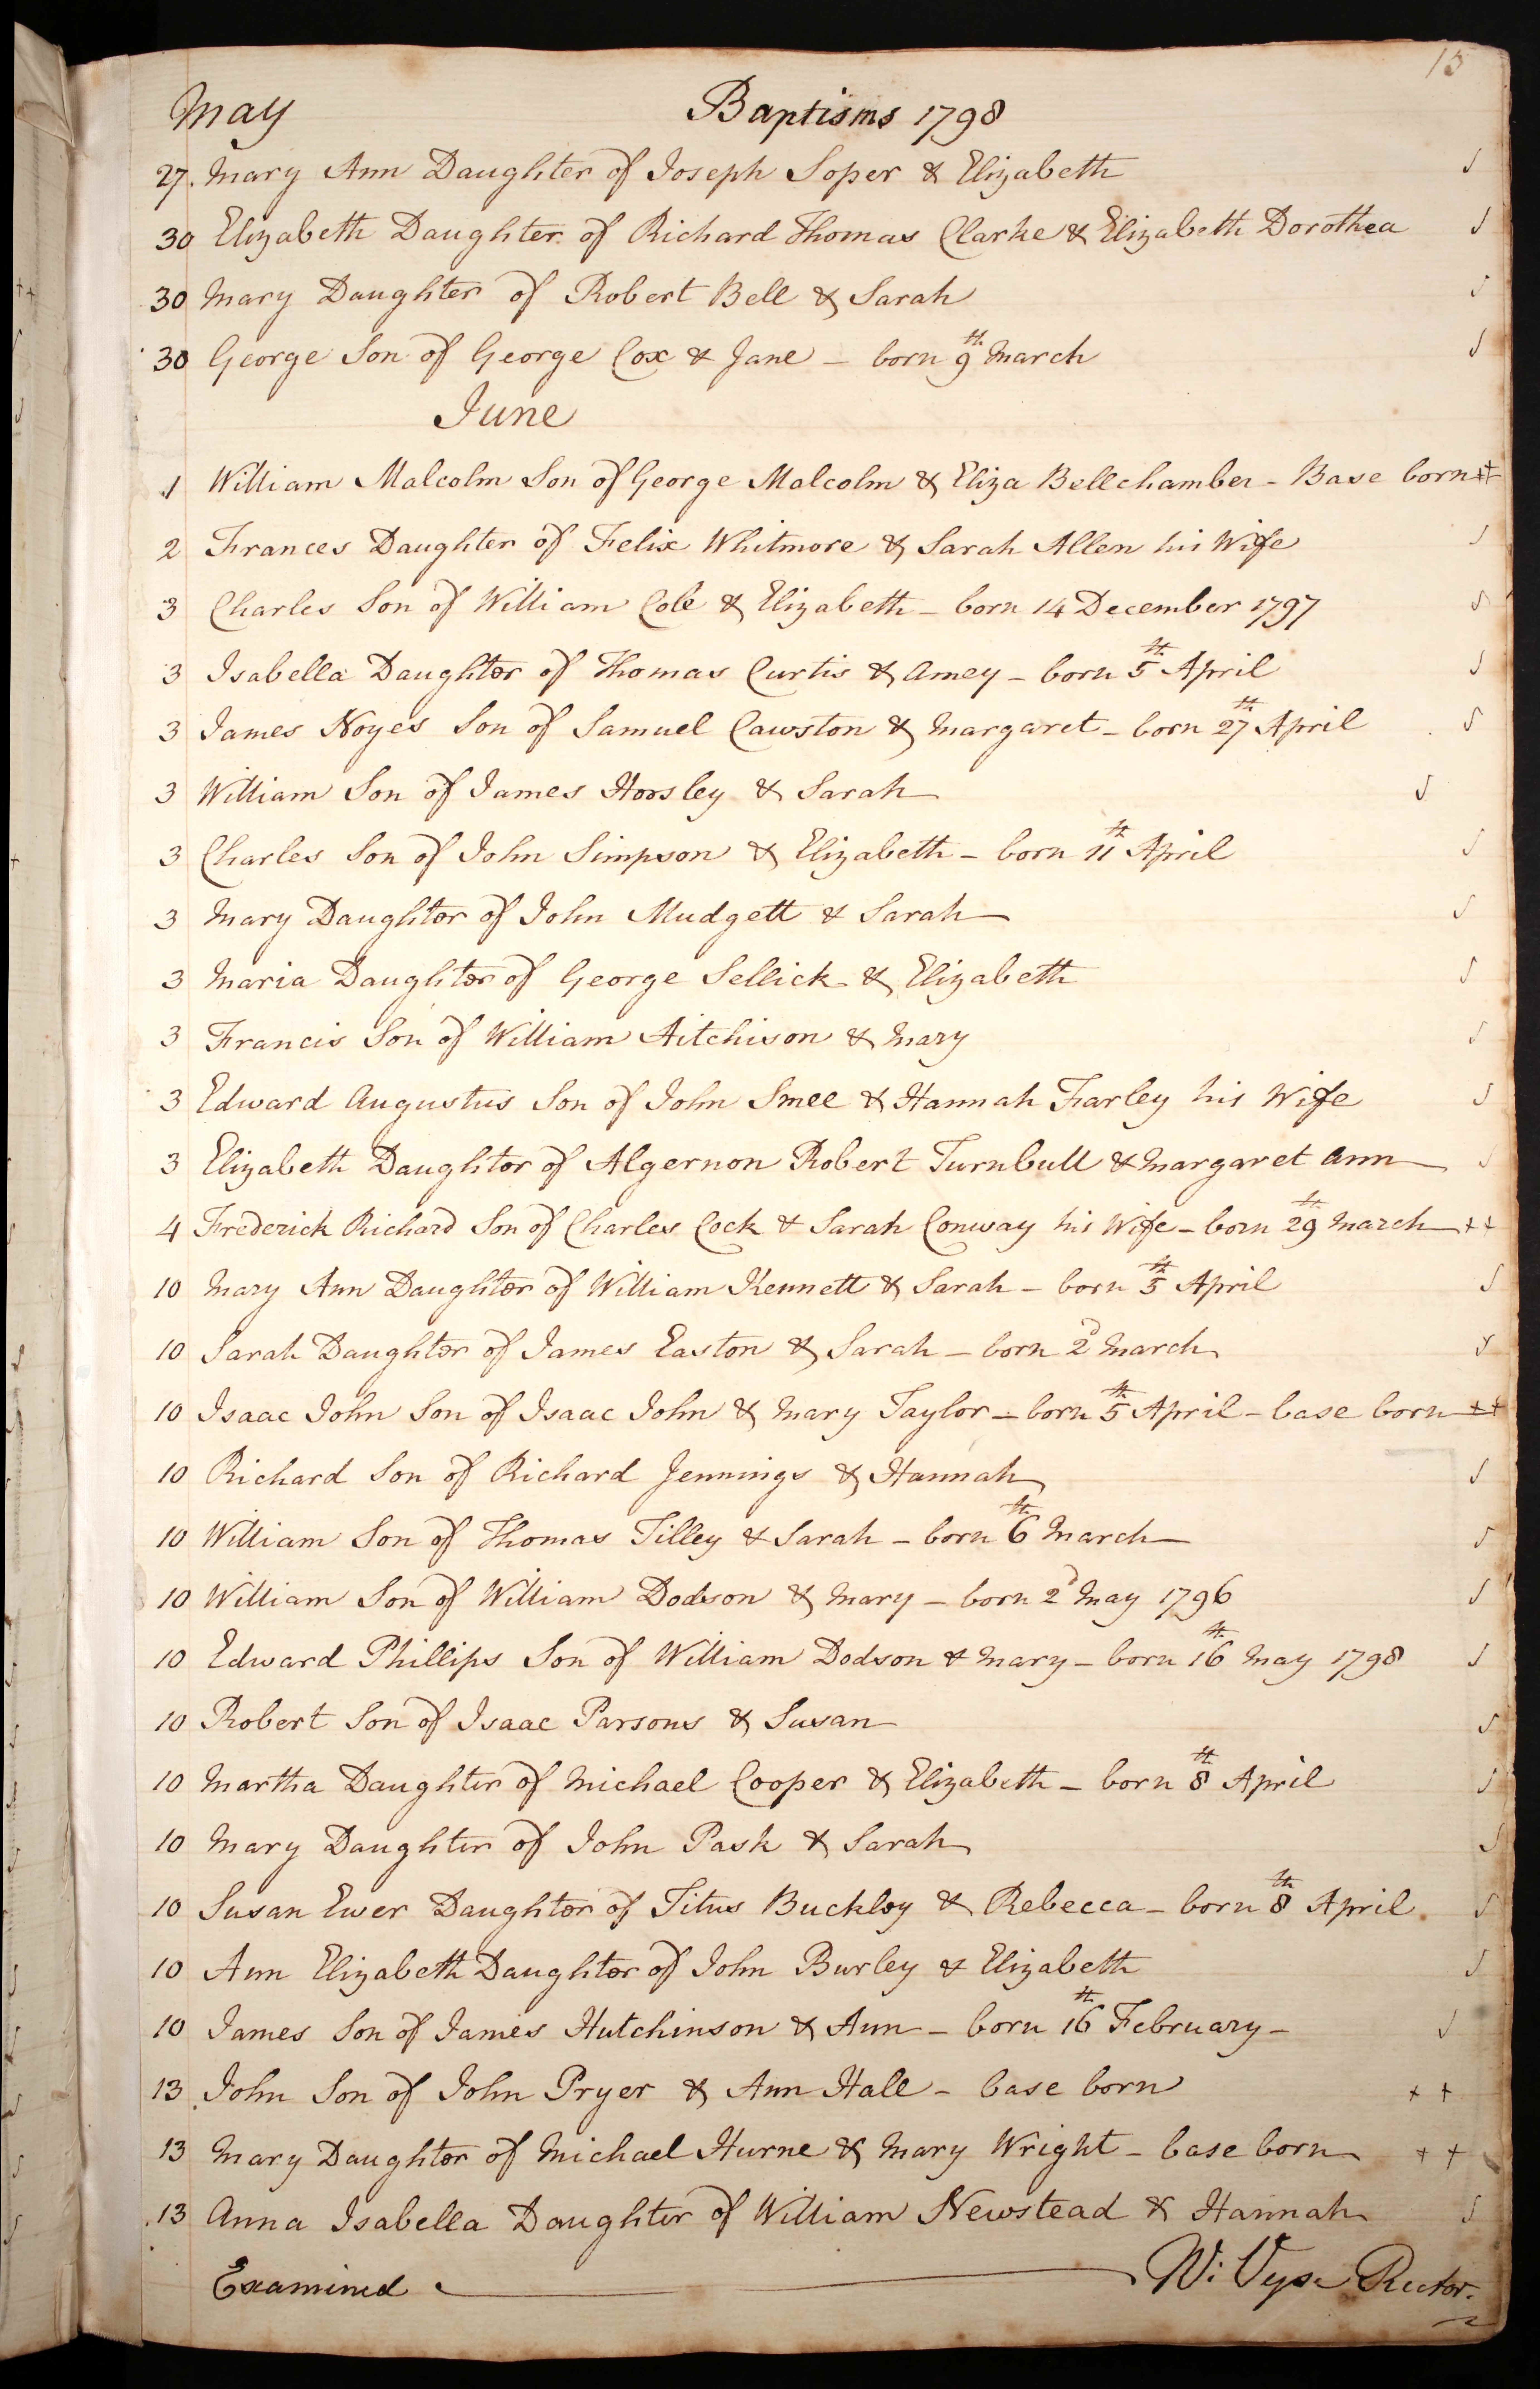 15
May Baptisms 1798
27. Mary Ann Daughter of Joseph Soper & Elizabeth
30 Elizabeth Daughter of Richard Thomas Clarke & Elizabeth Dorothea
30 Mary Daughter of Robert Bell & Sarah
30 George Son of George Cox & Jane - born 9th March
June
1 William Malcolm Son of George Malcolm & Eliza Bellchamber - Base born ++
2 Frances Daughter of Felix Whitmore & Sarah Allen his Wife
3 Charles Son of William Cole & Elizabeth - born 14 December 1797
3 Isabella Daughter of Thomas Curtis & Amey - born 5th April
3 James Noyes Son of Samuel Cawston & Margaret - born 27th April
3 William Son of James Horsley & Sarah
3 Charles Son of John Simpson & Elizabeth - born 11th April
3 Mary Daughter of John Mudgett & Sarah
3 Maria Daughter of George Sellick & Elizabeth
3 Francis Son of William Aitchison & Mary
3 Edward Augustus Son of John Smee & Hannah Farley his Wife
3 Elizabeth Daughter of Algernon Robert Turnbull & Margaret Ann
4 Frederick Richard Son of Charles Cock & Sarah Conway his Wife - born 29th March ++
10 Mary Ann Daughter of William Kennett & Sarah - born 5th April
10 Sarah Daughter of James Easton & Sarah - born 2d March
10 Isaac John Son of Isaac John & Mary Taylor - born 5th April - base born ++
10 Richard Son of Richard Jennings & Hannah
10 William Son of Thomas Tilley & Sarah - born 6th March
10 William Son of William Dodson & Mary - born 2d May 1796
10 Edward Phillips Son of William Dodson & Mary - born 16th May 1798
10 Robert Son of Isaac Parsons & Susan
10 Martha Daughter of Michael Cooper & Elizabeth - born 8th April
10 Mary Daughter of John Pask & Sarah
10 Susan Ewer Daughter of Titus Buckley & Rebecca - born 8th April
10 Ann Elizabeth Daughter of John Burley & Elizabeth
10 James Son of James Hutchinson & Ann - born 16th February -
13 John Son of John Pryer & Ann Hall - base born ++
13 Mary Daughter of Michael Hurne & Mary Wright - base born ++
13 Anna Isabella Daughter of William Newstead & Hannah
Examined W: Vyse Rector.